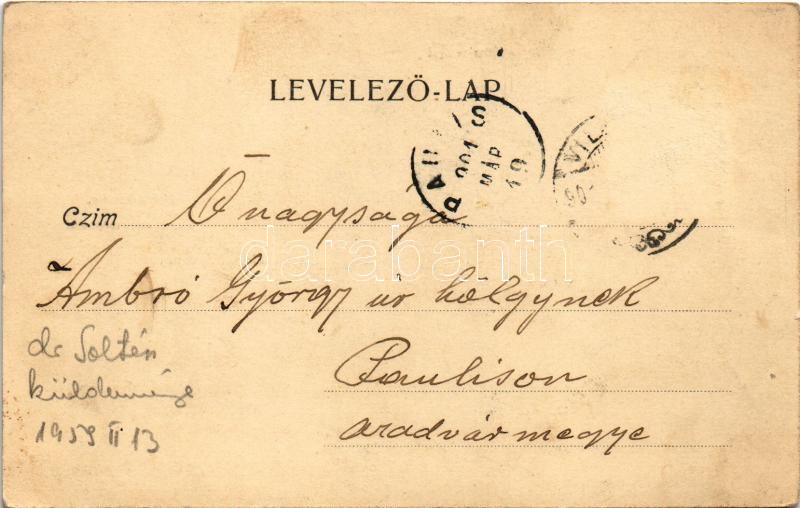 LEVELEZŐ-LAP
PAULIS
901
MÁR
19
VIL
90
Czim Őnagysága
Ambró György úr hölgynek
Paulison
aradvármegye
dr Soltén
küldeménye
1959 II 13
darabanth